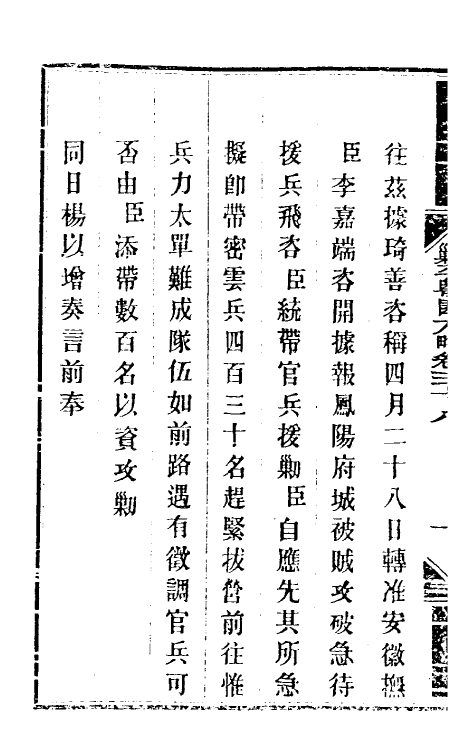 往茲據琦善咨稱四月二十八日轉准安徽撫
臣李嘉端咨開據報鳳陽府城被賊攻破急待
援兵飛咨臣統帶官兵援勦臣自應先其所急
擬卽帶密雲兵四百三十名趕緊拔營前往惟
兵力太單難成隊伍如前路遇有徵調官兵可
否由臣添帶數百名以資攻勦
同日楊以增奏言前奉